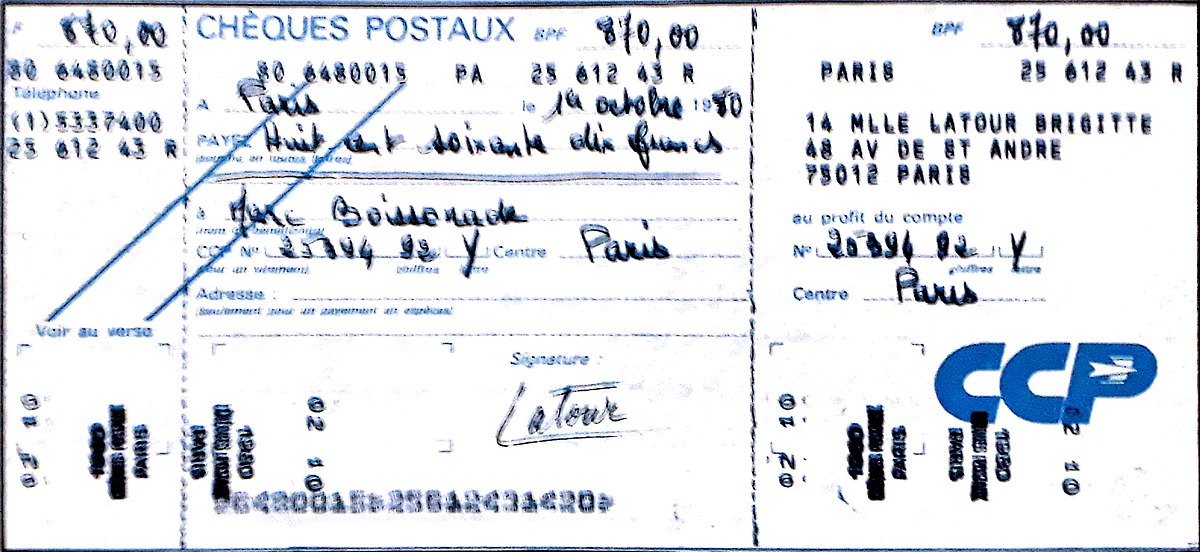 F 870,00
80 6480015
Téléphone
(1)5337400
25 612 43 R
Voir au verso
CHÈQUES POSTAUX BPF 870,00
80 6480015 PA 25 612 43 R
A Paris le 1er octobre 1980
PAYEZ Huit cent soixante dix francs
à Marc Boissenade
CCP N° 20394 92 Y Centre Paris
pour un virement chiffres lettre
Adresse :
seulement pour un payement en espèces
Signature :
Latour
02 10
1980
PARIS
BPF 870,00
PARIS 25 612 43 R
14 MLLE LATOUR BRIGITTE
48 AV DE ST ANDRE
75012 PARIS
au profit du compte
N° 20394 92 Y
chiffres lettre
Centre Paris
CCP
02 10
1980
PARIS